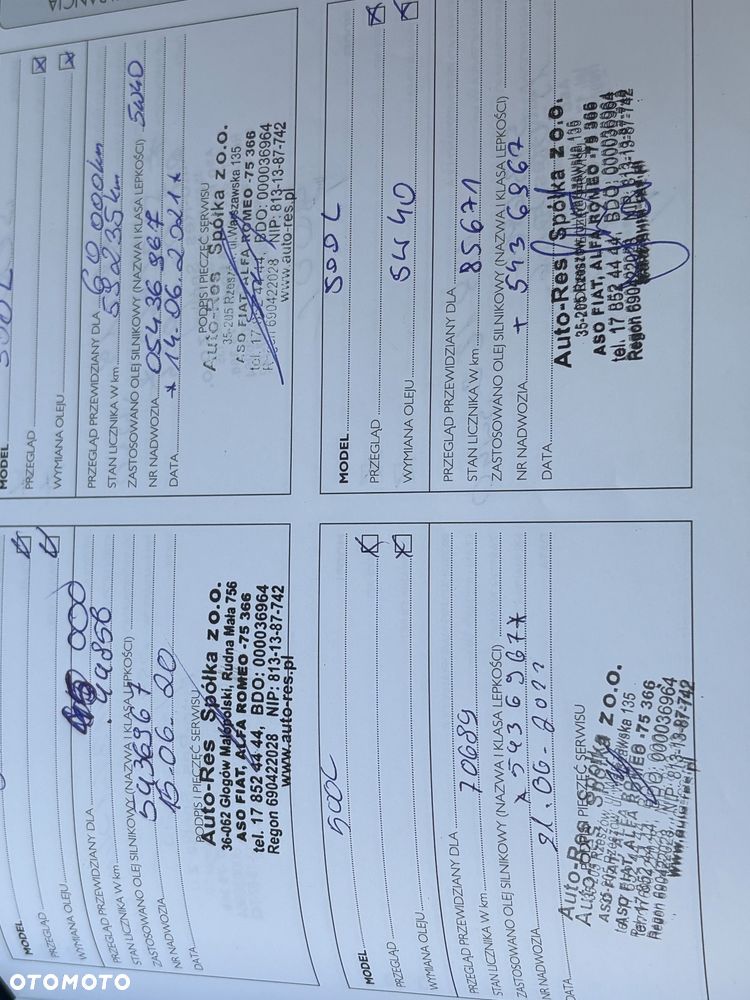 MODEL
PRZEGLĄD
WYMIANA OLEJU
PRZEGLĄD PRZEWIDZIANY DLA 000
STAN LICZNIKA W km 44856
ZASTOSOWANO OLEJ SILNIKOWY (NAZWA I KLASA LEPKOŚCI)
NR NADWOZIA 5436967
DATA 15-06-20
PODPIS I PIECZĘĆ SERWISU
Auto-Res Spółka z o.o.
36-062 Głogów Małopolski, Rudna Mała 756
ASO FIAT, ALFA ROMEO -75 366
tel. 17 852 44 44, BDO: 000036964
Regon 690422028 NIP: 813-13-87-742
www.auto-res.pl
MODEL
PRZEGLĄD
WYMIANA OLEJU
PRZEGLĄD PRZEWIDZIANY DLA 60 000km
STAN LICZNIKA W km 59235km
ZASTOSOWANO OLEJ SILNIKOWY (NAZWA I KLASA LEPKOŚCI) 5W40
NR NADWOZIA 05436967
DATA * 14-06.2021*
PODPIS I PIECZĘĆ SERWISU
Auto-Res Spółka z o.o.
35-205 Rzeszów, ul. Warszawska 135
ASO FIAT, ALFA ROMEO -75 366
tel. 17 852 44 44, BDO: 000036964
Regon 690422028 NIP: 813-13-87-742
www.auto-res.pl
MODEL 500C
PRZEGLĄD
WYMIANA OLEJU
PRZEGLĄD PRZEWIDZIANY DLA
STAN LICZNIKA W km 70689
ZASTOSOWANO OLEJ SILNIKOWY (NAZWA I KLASA LEPKOŚCI)
NR NADWOZIA *5436967*
DATA 21.06-2022
PIECZĘĆ SERWISU
Auto-Res Spółka z o.o.
ASO FIAT, ALFA ROMEO -75 366
MODEL 500 C
PRZEGLĄD
WYMIANA OLEJU 5W40
PRZEGLĄD PRZEWIDZIANY DLA
STAN LICZNIKA W km 85671
ZASTOSOWANO OLEJ SILNIKOWY (NAZWA I KLASA LEPKOŚCI)
NR NADWOZIA + 5436967
DATA
Auto-Res Spółka z o.o.
ASO FIAT, ALFA ROMEO -75 366
tel. 17 852 44 44, BDO: 000036964
Regon 690422028 NIP: 813-13-87-742
OTOMOTO